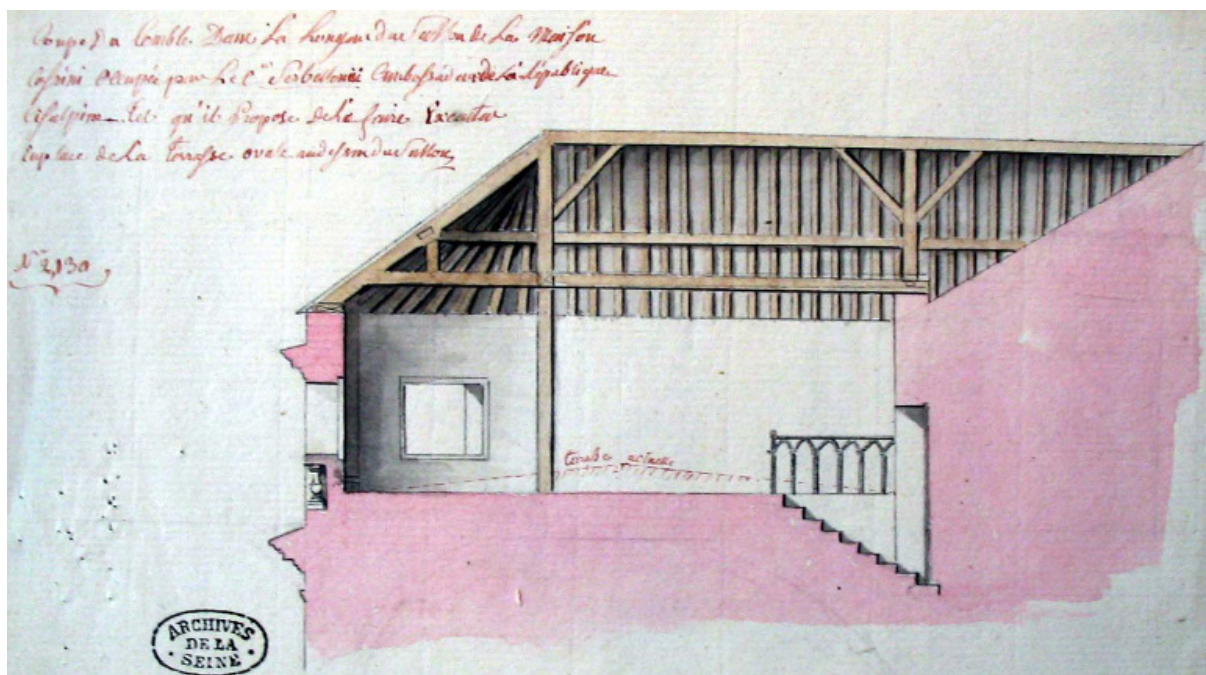 Coupe du Comble Dans La Longueur du Sallon de La Maison
Cassini occupée par Le Cen Serbelloni Ambassadeur de La République
Cisalpine Tel qu'il Propose de le faire Executer
En place de La Terrasse ovale audessus du Sallon
terrasse actuelle
ARCHIVES
DE LA
SEINE